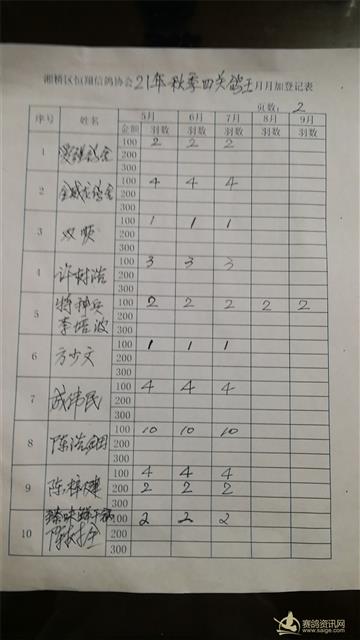 湘桥区恒翔信鸽协会21年秋季四关鸽王月月加登记表
页数: 2
序号 姓名 5月 6月 7月 8月 9月
金额 羽数 羽数 羽数 羽数 羽数
1 100 2 2 2
200
300
2 100 4 4 4
200
300
3 双顺 100 1 1 1
200
300
4 许树浩 100 3 3 3
200
300
5 特种兵 100 2 2 2 2 2
李培波 200
300
6 方少文 100 1 1 1
200
300
7 成伟民 100 4 4 4
200
300
8 陈浩 100 10 10 10
200
300
9 陈梓建 100 4 4 4
200 2 2 2
300
10 100 2 2 2
200
300
赛鸽资讯网
www.saige.com